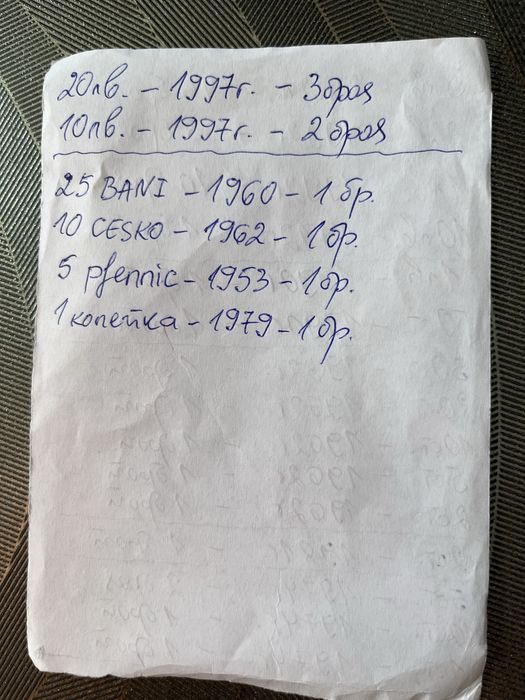 20лв. - 1997г. - 3броя
10лв. - 1997г. - 2 броя
25 BANI - 1960 - 1 бр.
10 CESKO - 1962 - 1бр.
5 pfennic - 1953 - 1бр.
1 копейка - 1979 - 1бр.